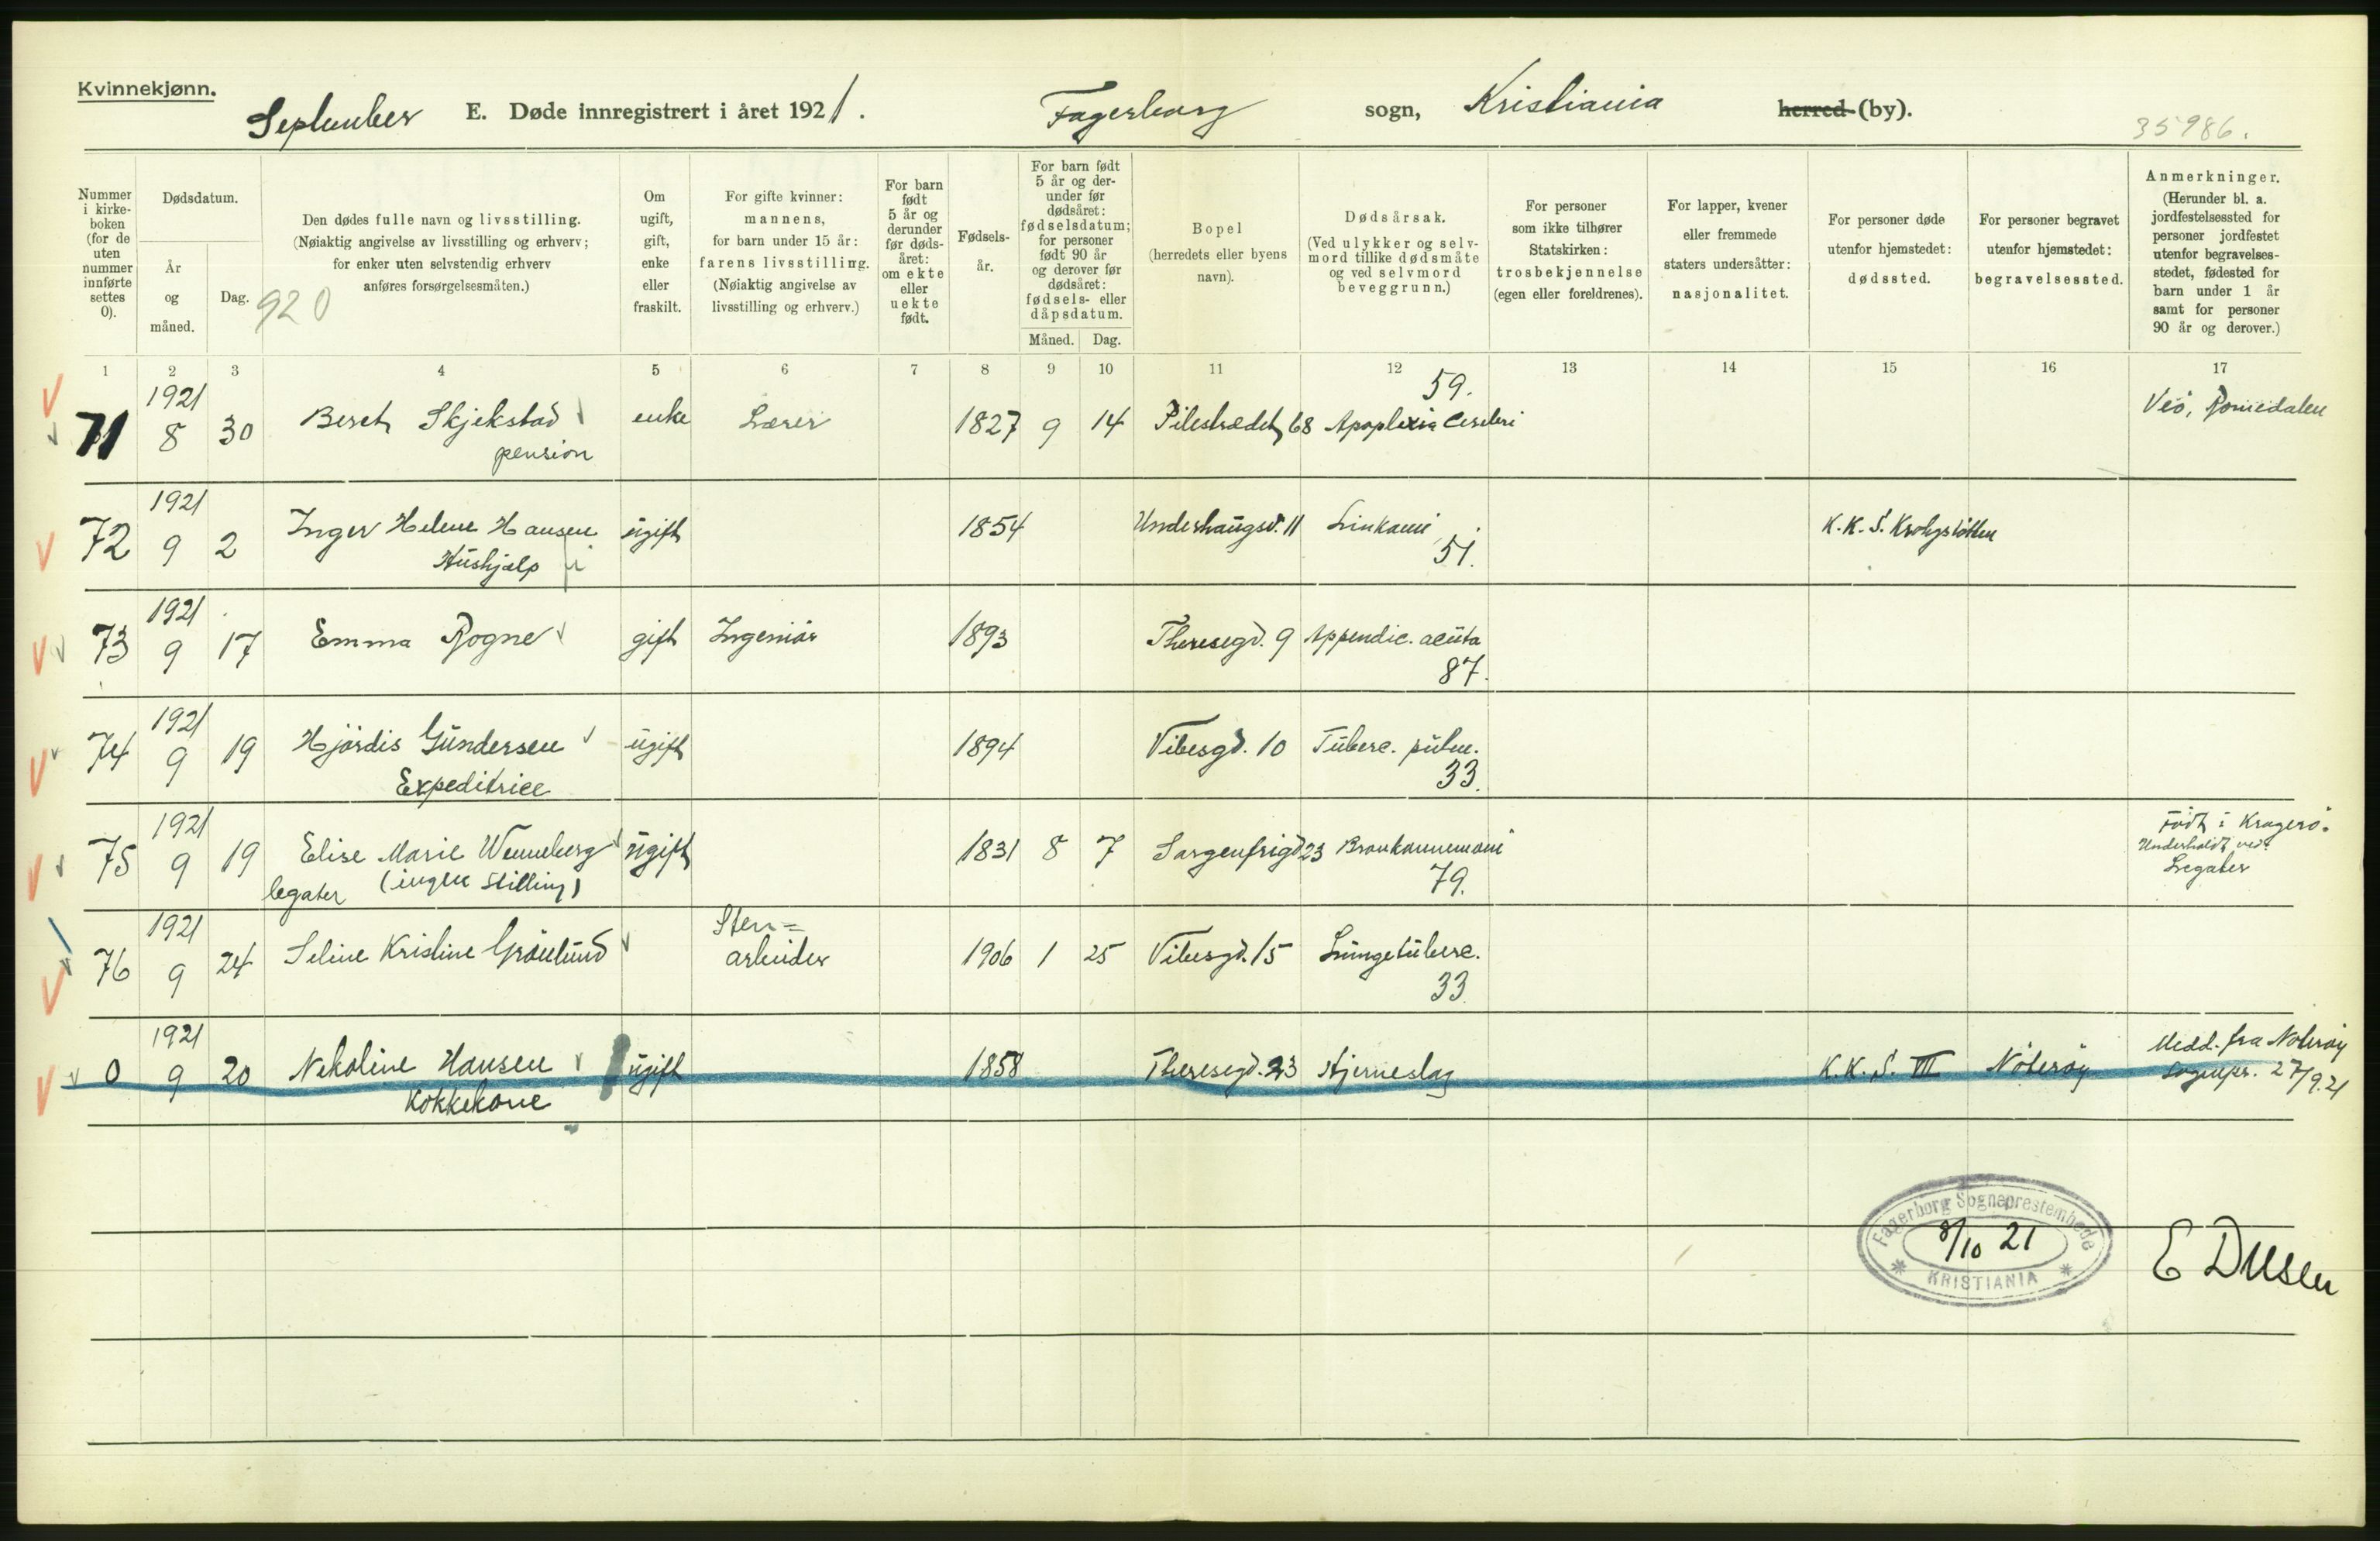 Kvinnekjønn.
September E. Døde innregistrert i året 1921. Fagerborg sogn, Kristiania herred (by).
35986.
Nummer i kirkeboken (for de uten nummer innførte settes 0).
Dødsdatum.
År og måned.
Dag.
920
Den dødes fulle navn og livsstilling.
(Nøiaktig angivelse av livsstilling og erhverv;
for enker uten selvstendig erhverv
anføres forsørgelsesmåten.)
Om ugift, gift, enke eller fraskilt.
For gifte kvinner:
mannens,
for barn under 15 år:
farens livsstilling.
(Nøiaktig angivelse av
livsstilling og erhverv.)
For barn født 5 år og derunder før dødsåret: om ekte eller uekte født.
Fødselsår.
For barn født 5 år og derunder før dødsåret: fødselsdatum; for personer født 90 år og derover før dødsåret: fødsels- eller dåpsdatum.
Måned. Dag.
Bopel
(herredets eller byens
navn).
Dødsårsak.
(Ved ulykker og selvmord tillike dødsmåte
og ved selvmord
beveggrunn.)
For personer
som ikke tilhører
Statskirken:
trosbekjennelse
(egen eller foreldrenes).
For lapper, kvener
eller fremmede
staters undersåtter:
nasjonalitet.
For personer døde
utenfor hjemstedet:
dødssted.
For personer begravet
utenfor hjemstedet:
begravelsessted.
Anmerkninger.
(Herunder bl. a.
jordfestelsessted for
personer jordfestet
utenfor begravelsesstedet, fødested for
barn under 1 år
samt for personer
90 år og derover.)
1 2 3 4 5 6 7 8 9 10 11 12 13 14 15 16 17
1921 59.
71 8 30 Beret Skjekstad enke Lærer 1827 9 14 Pilestrædet 68 Apoplexia Cerebri Veö, Romedalen
pension
1921
72 9 2 Inger Helene Hansen ugift 1854 Underhaugsv. 11 K.K.S. Krohgstötten
Hushjælp 51.
1921
73 9 17 Emma Rogne gift Ingeniör 1893 Theresegd. 9 Appendic. acuta
87.
1921
74 9 19 Hjördis Gundersen ugift 1894 Vibesgd. 10 Tuberc. pulm.
Expeditrice 33.
1921
75 9 19 Elise Marie Wenneberg ugift 1831 8 7 Sorgenfrigd 23 Bronkopnemoni Född i Kragerö.
Underholdt ved
Legater
legater (ingen Stilling) 79.
1921 Sten=
76 9 24 Seline Kristine Grönlund arbeider 1906 1 25 Vibesgd. 15 Lungetuberc.
33.
1921
0 9 20 Nekoline Hansen ugift 1858 Theresegd. 23 Hjerneslag K.K.S. VII Nöteröy Medd. fra Nöteröy
Sognepr. 27/9.21
Kokkekone
Fagerborg Sogneprestembede
8/10 21
KRISTIANIA